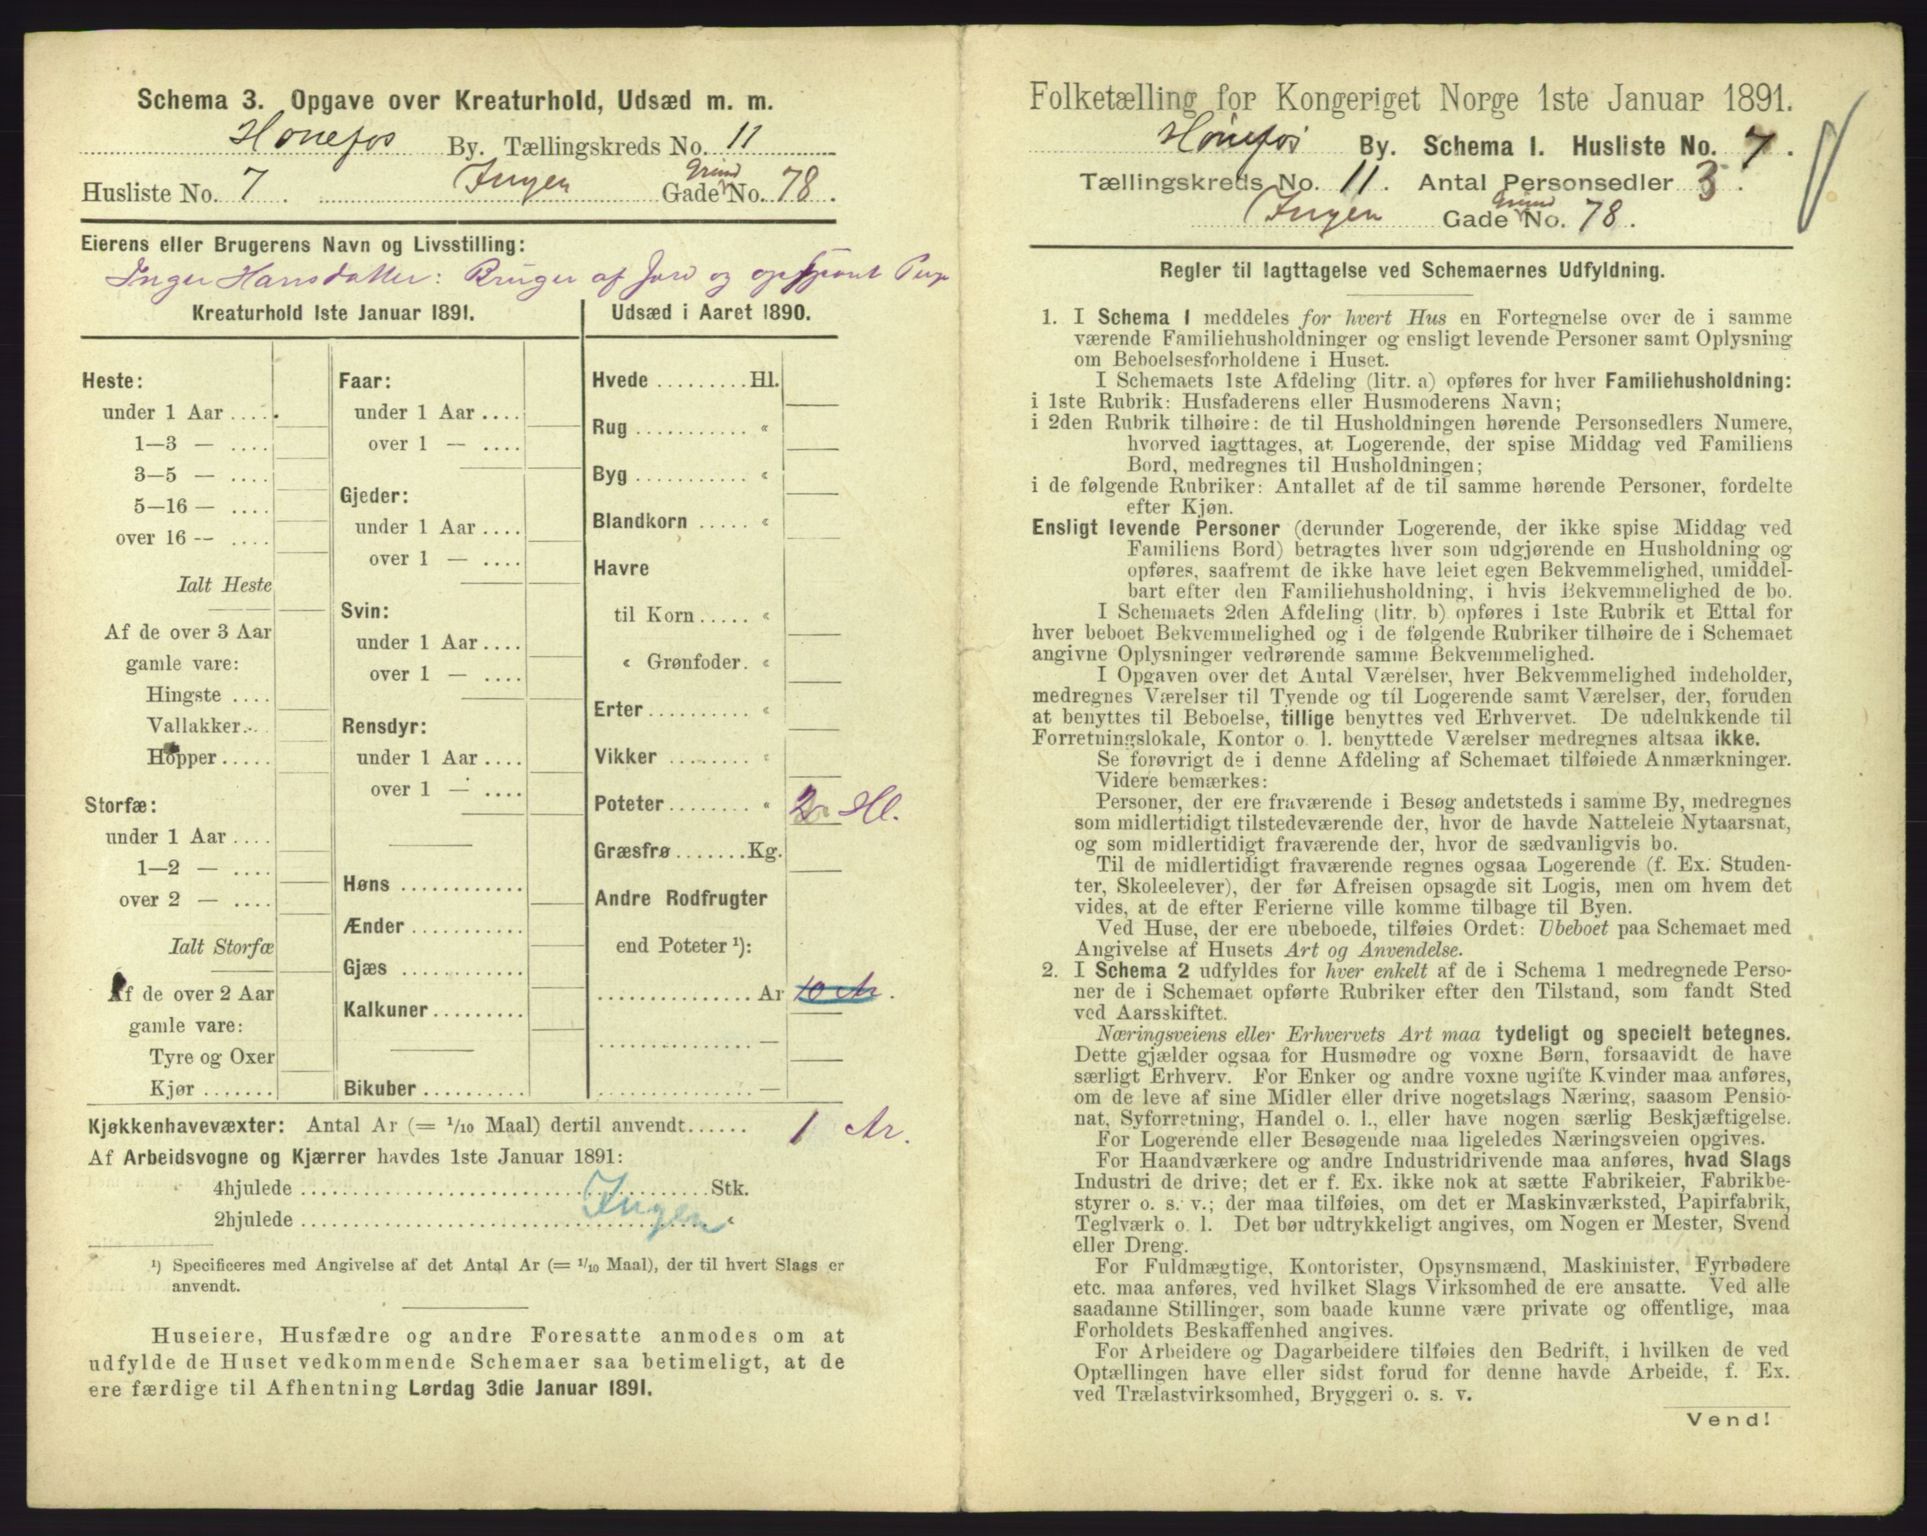 Schema 3. Opgave over Kreaturhold, Udsæd m. m.
Hönefos By. Tællingskreds No. 11
Husliste No. 7. Ingen Gade Grund No. 78.
Eierens eller Brugerens Navn og Livsstilling:
Inger Hansdatter: Bruger af Jord og
Kreaturhold 1ste Januar 1891.
Heste:
under 1 Aar .....
1—3 — ....
3—5 — ....
5—16 — ....
over 16 -- ....
Ialt Heste
Af de over 3 Aar
gamle vare:
Hingste ....
Vallakker...
Hopper.....
Storfæ:
under 1 Aar ....
1—2 — ....
over 2 — ....
Ialt Storfæ
Af de over 2 Aar
gamle vare:
Tyre og Oxer
Kjør.......
Faar:
under 1 Aar ....
over 1 — ....
Gjeder:
under 1 Aar ....
over 1 — ....
Svin:
under 1 Aar ....
over 1 — ....
Rensdyr:
under 1 Aar ....
over 1 — ....
Høns ............
Ænder ...........
Gjæs ............
Kalkuner.........
Bikuber ..........
Udsæd i Aaret 1890.
Hvede .........Hl.
Rug ........... "
Byg ........... "
Blandkorn ..... "
Havre
til Korn ..... "
" Grønfoder. "
Erter .......... "
Vikker ........ "
Poteter ........ " 2 Hl.
Græsfrø .......Kg.
Andre Rodfrugter
end Poteter ¹):
...............Ar 10 Ar.
...............—
...............—
Kjøkkenhavevæxter: Antal Ar (= 1/10 Maal) dertil anvendt...... 1 Ar.
Af Arbeidsvogne og Kjærrer havdes 1ste Januar 1891:
4hjulede ........................................Stk.
2hjulede ........................................ "
Ingen
¹) Specificeres med Angivelse af det Antal Ar (= 1/10 Maal), der til hvert Slags er
anvendt.
Huseiere, Husfædre og andre Foresatte anmodes om at
udfylde de Huset vedkommende Schemaer saa betimeligt, at de
ere færdige til Afhentning Lørdag 3die Januar 1891.
Folketælling for Kongeriget Norge 1ste Januar 1891.
Hönefos By. Schema I. Husliste No. 7.
Tællingskreds No. 11. Antal Personsedler 3.
Ingen Gade Grund No. 78.
Regler til Iagttagelse ved Schemaernes Udfyldning.
1. I Schema 1 meddeles for hvert Hus en Fortegnelse over de i samme
værende Familiehusholdninger og ensligt levende Personer samt Oplysning
om Beboelsesforholdene i Huset.
I Schemaets 1ste Afdeling (litr. a) opføres for hver Familiehusholdning:
i 1ste Rubrik: Husfaderens eller Husmoderens Navn;
i 2den Rubrik tilhøire: de til Husholdningen hørende Personsedlers Numere,
hvorved iagttages, at Logerende, der spise Middag ved Familiens
Bord, medregnes til Husholdningen;
i de følgende Rubriker: Antallet af de til samme hørende Personer, fordelte
efter Kjøn.
Ensligt levende Personer (derunder Logerende, der ikke spise Middag ved
Familiens Bord) betragtes hver som udgjørende en Husholdning og
opføres, saafremt de ikke have leiet egen Bekvemmelighed, umiddel-
bart efter den Familiehusholdning, i hvis Bekvemmelighed de bo.
I Schemaets 2den Afdeling (litr. b) opføres i 1ste Rubrik et Ettal for
hver beboet Bekvemmelighed og i de følgende Rubriker tilhøire de i Schemaet
angivne Oplysninger vedrørende samme Bekvemmelighed.
I Opgaven over det Antal Værelser, hver Bekvemmelighed indeholder,
medregnes Værelser til Tyende og til Logerende samt Værelser, der, foruden
at benyttes til Beboelse, tillige benyttes ved Erhvervet. De udelukkende til
Forretningslokale, Kontor o. l. benyttede Værelser medregnes altsaa ikke.
Se forøvrigt de i denne Afdeling af Schemaet tilføiede Anmærkninger.
Videre bemærkes:
Personer, der ere fraværende i Besøg andetsteds i samme By, medregnes
som midlertidigt tilstedeværende der, hvor de havde Natteleie Nytaarsnat,
og som midlertidigt fraværende der, hvor de sædvanligvis bo.
Til de midlertidigt fraværende regnes ogsaa Logerende (f. Ex. Studen-
ter, Skoleelever), der før Afreisen opsagde sit Logis, men om hvem det
vides, at de efter Ferierne ville komme tilbage til Byen.
Ved Huse, der ere ubeboede, tilføies Ordet: Ubeboet paa Schemaet med
Angivelse af Husets Art og Anvendelse.
2. I Schema 2 udfyldes for hver enkelt af de i Schema 1 medregnede Perso-
ner de i Schemaet opførte Rubriker efter den Tilstand, som fandt Sted
ved Aarsskiftet.
Næringsveiens eller Erhvervets Art maa tydeligt og specielt betegnes.
Dette gjælder ogsaa for Husmødre og voxne Børn, forsaavidt de have
særligt Erhverv. For Enker og andre voxne ugifte Kvinder maa anføres,
om de leve af sine Midler eller drive nogetslags Næring, saasom Pensio-
nat, Syforretning, Handel o. l., eller have nogen særlig Beskjæftigelse.
For Logerende eller Besøgende maa ligeledes Næringsveien opgives.
For Haandværkere og andre Industridrivende maa anføres, hvad Slags
Industri de drive; det er f. Ex. ikke nok at sætte Fabrikeier, Fabrikbe-
styrer o. s. v.; der maa tilføies, om det er Maskinværksted, Papirfabrik,
Teglværk o. l. Det bør udtrykkeligt angives, om Nogen er Mester, Svend
eller Dreng.
For Fuldmægtige, Kontorister, Opsynsmænd, Maskinister, Fyrbødere
etc. maa anføres, ved hvilket Slags Virksomhed de ere ansatte. Ved alle
saadanne Stillinger, som baade kunne være private og offentlige, maa
Forholdets Beskaffenhed angives.
For Arbeidere og Dagarbeidere tilføies den Bedrift, i hvilken de ved
Optællingen have eller sidst forud for denne havde Arbeide, f. Ex.
ved Trælastvirksomhed, Bryggeri o. s. v.
Vend!